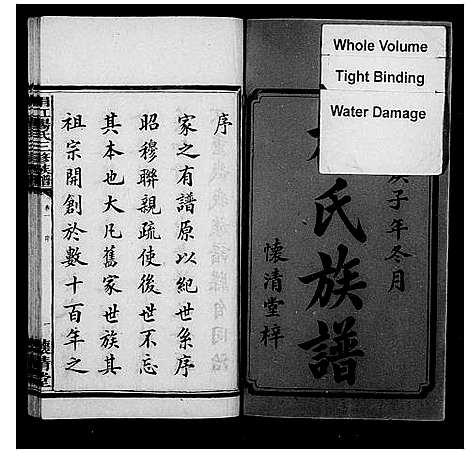 Whole Volume
Tight Binding
Water Damage
子年冬月
氏族譜
懷清堂梓
序
家之有譜原以紀世系序
昭穆聯親疏使後世不忘
其本也大凡舊家世族其
祖宗開創於數十百年之
氏三修族譜
懷清堂